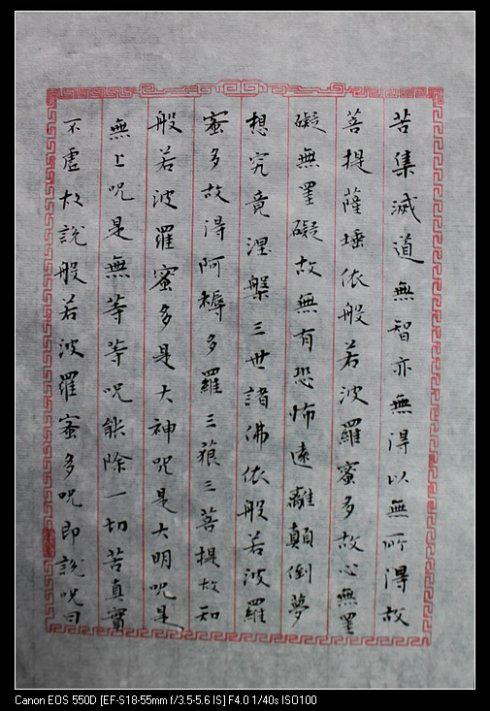 苦集滅道無智亦無得以無所得故
菩提薩埵依般若波羅蜜多故心無罣
礙無罣礙故無有恐怖遠離顛倒夢
想究竟涅槃三世諸佛依般若波羅
蜜多故得阿耨多羅三藐三菩提故知
般若波羅蜜多是大神咒是大明咒是
無上咒是無等等咒能除一切苦真實
不虛故說般若波羅蜜多咒即說咒曰
Canon EOS 550D [EF-S18-55mm f/3.5-5.6 IS] F4.0 1/40s ISO100